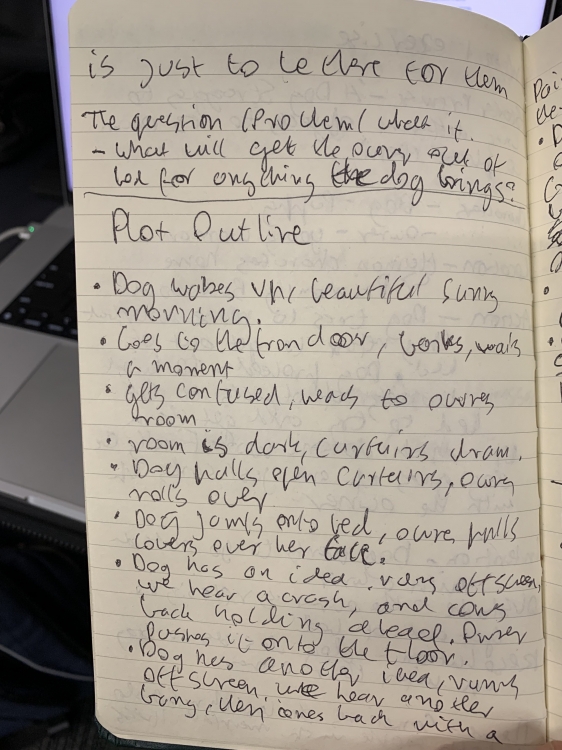 is just to be there for them
The question / Problem / what if.
- What will get the owner out of
bed for anything the dog brings?
Plot Outline
• Dog wakes up, beautiful sunny
morning.
• Goes to the front door, barks, waits
a moment
• gets confused, heads to owners
room
• room is dark, curtains drawn.
• Dog pulls open curtains, owner
rolls over
• Dog jumps onto bed, owner pulls
covers over her face.
• Dog has an idea. runs offscreen,
we hear a crash, and comes
back holding a lead. Owner
pushes it onto the floor.
• Dog has another idea, runs
offscreen, we hear another
bang, then comes back with a